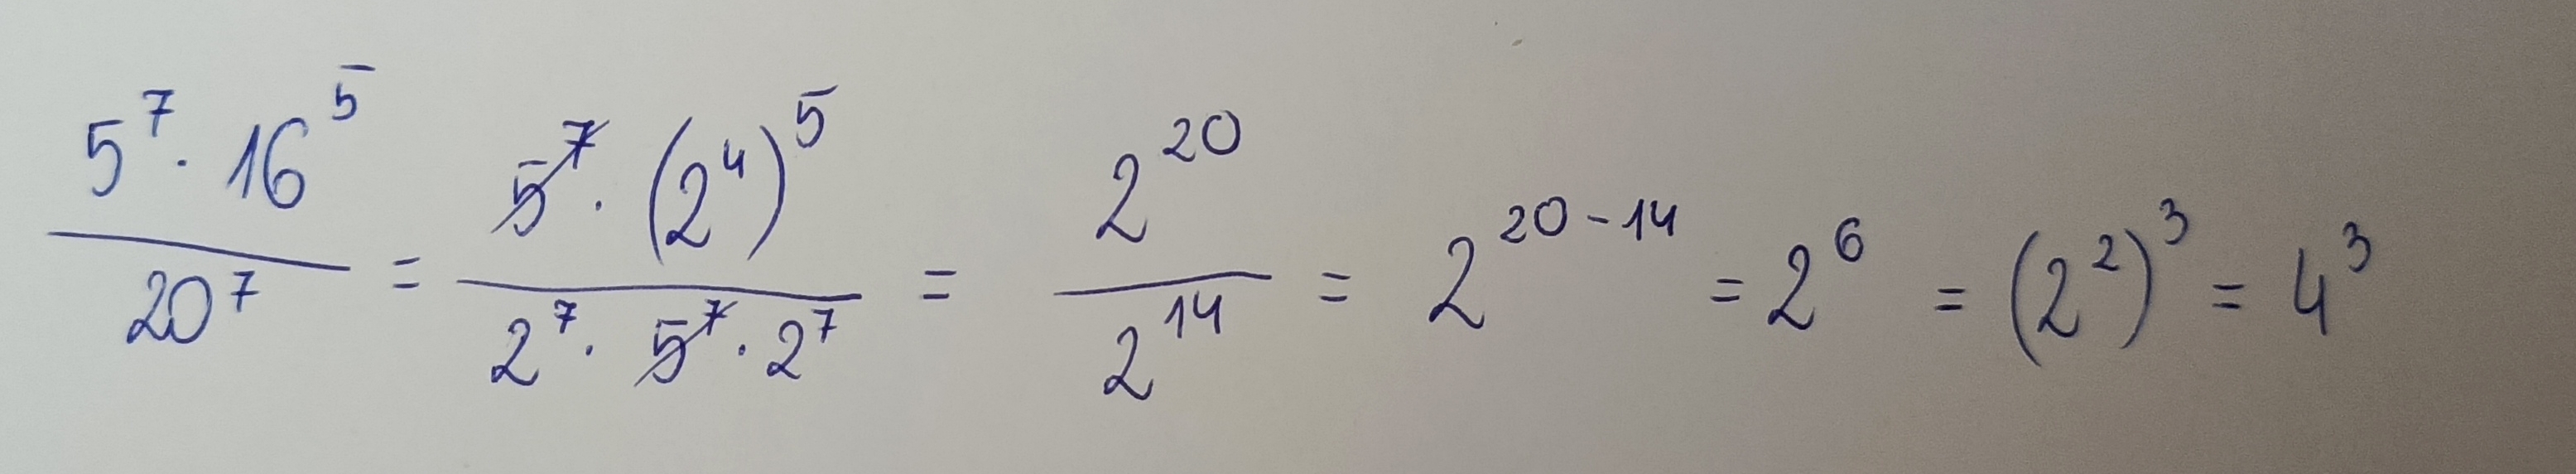 \frac{5^7 \cdot 16^5}{20^7} = \frac{5^7 \cdot (2^4)^5}{2^7 \cdot 5^7 \cdot 2^7} = \frac{2^{20}}{2^{14}} = 2^{20-14} = 2^6 = (2^2)^3 = 4^3